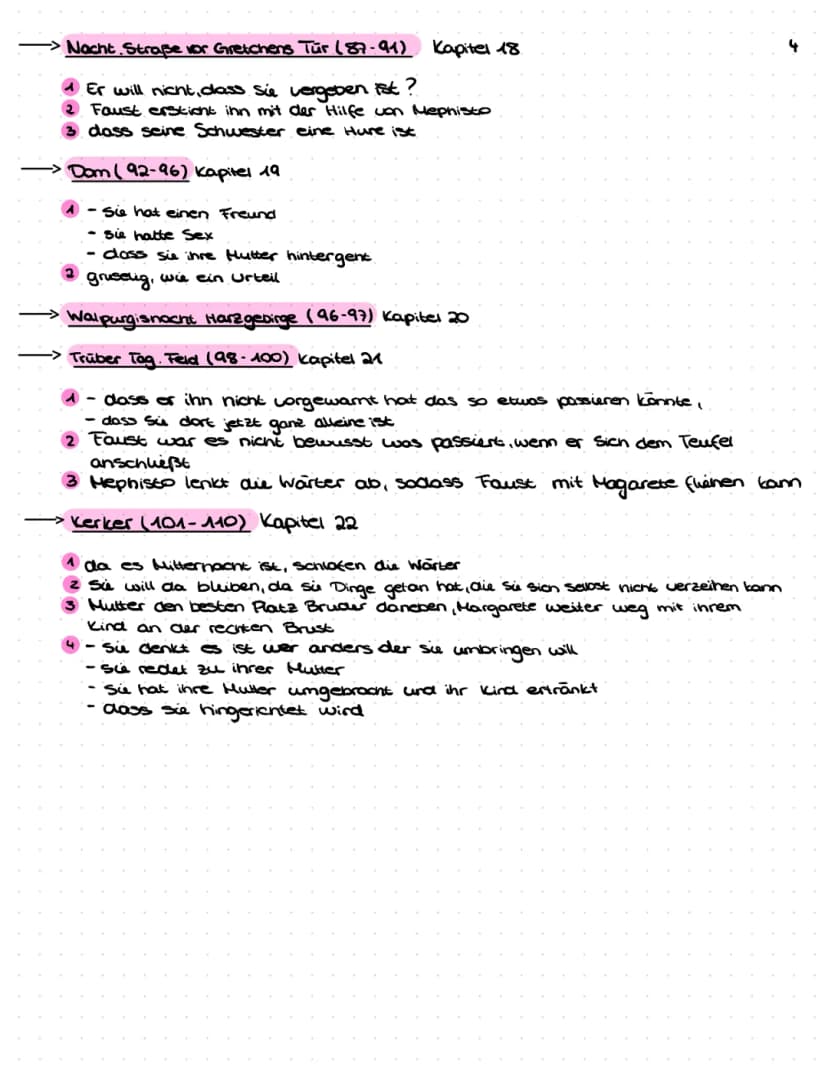 → Nacht. Straße vor Gretchens Tür (87-91) Kapitel 18 4
1 Er will nicht, dass sie vergeben ist?
2 Faust ersticht ihn mit der Hilfe von Mephisto
3 dass seine Schwester eine Hure ist
→ Dom (92-96) Kapitel 19
1 - Sie hat einen Freund
- sie hatte Sex
- dass sie ihre Mutter hintergeht
2 gruselig, wie ein Urteil
→ Walpurgisnacht Harzgebirge (96-97) Kapitel 20
→ Trüber Tag. Feld (98-100) Kapitel 21
1 - dass er ihn nicht vorgewarnt hat das so etwas passieren könnte,
- dass sie dort jetzt ganz alleine ist
2 Faust war es nicht bewusst was passiert, wenn er sich dem Teufel
anschließt
3 Mephisto lenkt die Wärter ab, sodass Faust mit Magarete fliehen kann
→ Kerker (101-110) Kapitel 22
1 da es Mitternacht ist, schlafen die Wärter
2 Sie will da bleiben, da sie Dinge getan hat, die sie sich selbst nicht verzeihen kann
3 Mutter den besten Platz Bruder daneben, Margarete weiter weg mit ihrem
Kind an der rechten Brust
4 - Sie denkt es ist wer anders der sie umbringen will
- sie redet zu ihrer Mutter
- Sie hat ihre Mutter umgebracht und ihr Kind ertränkt
- dass sie hingerichtet wird